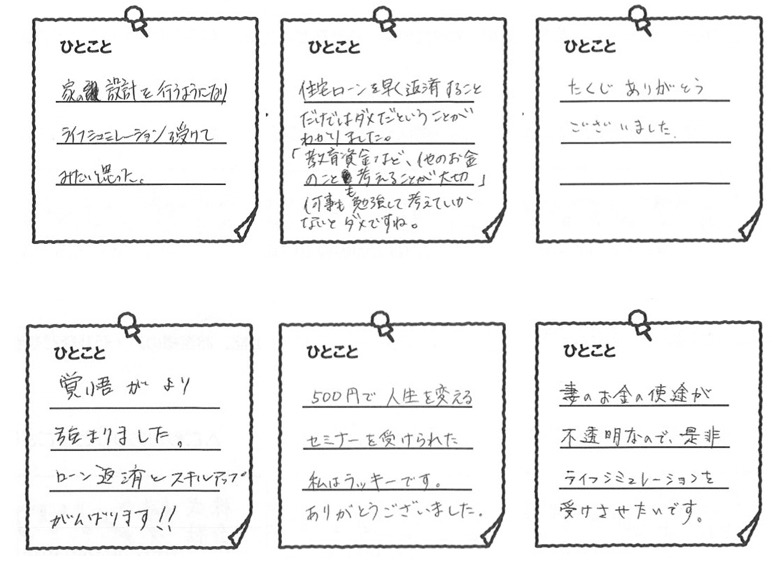 ひとこと
家の設計を行うようになり
ライフシュミレーション受けて
みたい思った。
ひとこと
住宅ローンを早く返済すること
だけではダメだということが
わかりました。
「教育資金など、他のお金
のことも考えることが大切」
何事も勉強して考えていか
ないとダメですね。
ひとこと
たくじ ありがとう
ございました。
ひとこと
覚悟が より
強まりました。
ローン返済とスキルアップ
がんばります!!
ひとこと
500円で人生を変える
セミナーを受けられた
私はラッキーです。
ありがとうございました。
ひとこと
妻のお金の使途が
不透明なので、是非
ライフシミュレーションを
受けさせたいです。